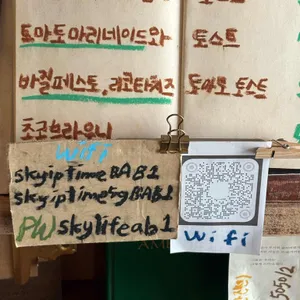 토마토마리네이드와 토스트
바질페스토, 리코타치즈 토마토 토스트
초코브라우니
wifi
skyiptimeBAB1
skyiptime5gBAB1
PW skylifeab1
wifi